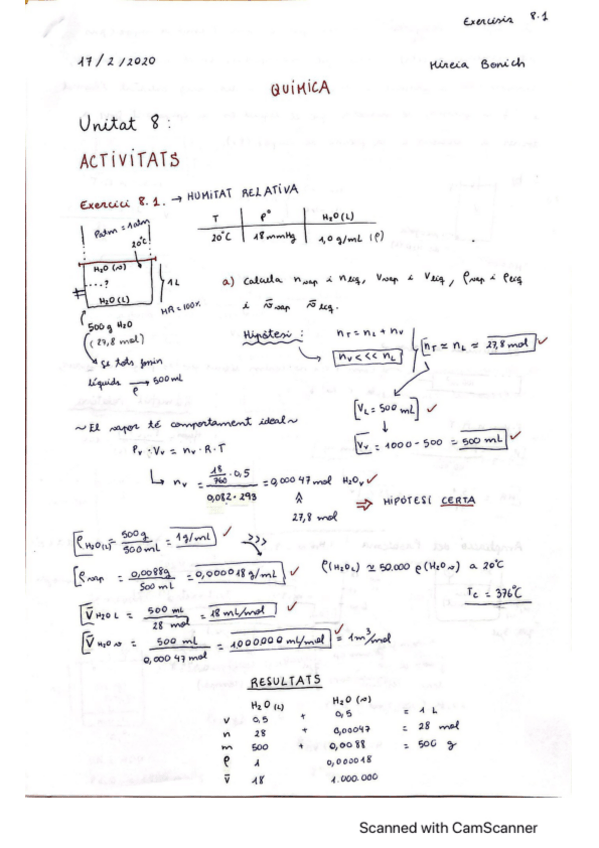 Exercisis 8.1
17/2/2020
Mireia Bonich
QUÍMICA
Unitat 8:
ACTIVITATS
Exercici 8.1. → HUMITAT RELATIVA
Patm = 1atm
20°C
H₂O (v)
....?
H₂O (L)
1L
HR = 100%
500 g H₂O
(27,8 mol)
Si tots fossin
líquids →ρ 500 ml
T | P° | H₂O (L)
20°C | 18 mmHg | 1,0 g/mL (ρ)
a) Calcula nvap i nliq, Vvap i Vliq, ρvap i ρliq
i v̄vap v̄liq.
Hipòtesi: nT = nL + nV
nV <<< nL
[nT ≃ nL ≃ 27,8 mol ✓
[VL = 500 mL] ✓
[VV = 1000 - 500 = 500 mL] ✓
~ El vapor té comportament ideal ~
Pv · Vv = nv · R · T
nv = (18/760 · 0,5) / (0,082 · 293) = 0,00047 mol H₂Ov ✓
27,8 mol
⇒ HIPÒTESI CERTA
[ρ H₂O(L) = 500g / 500mL = 1g/mL] ✓
>>>
[ρvap = 0,0088g / 500 mL = 0,000018 g/mL] ✓
ρ(H₂OL) ≃ 50.000 ρ(H₂Ov) a 20°C
Tc = 376°C
[V̄ H₂O L = 500 mL / 28 mol = 18 mL/mol] ✓
[V̄ H₂O v = 500 mL / 0,00047 mol = 1000000 mL/mol] ✓ = 1m³/mol
RESULTATS
H₂O (L) H₂O (v)
V 0,5 + 0,5 = 1 L
n 28 + 0,00047 = 28 mol
m 500 + 0,0088 = 500 g
ρ 1 0,000018
v̄ 18 1.000.000
Scanned with CamScanner